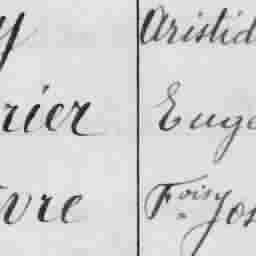 y Aristid
rier Euge
vre F.oisy Jos